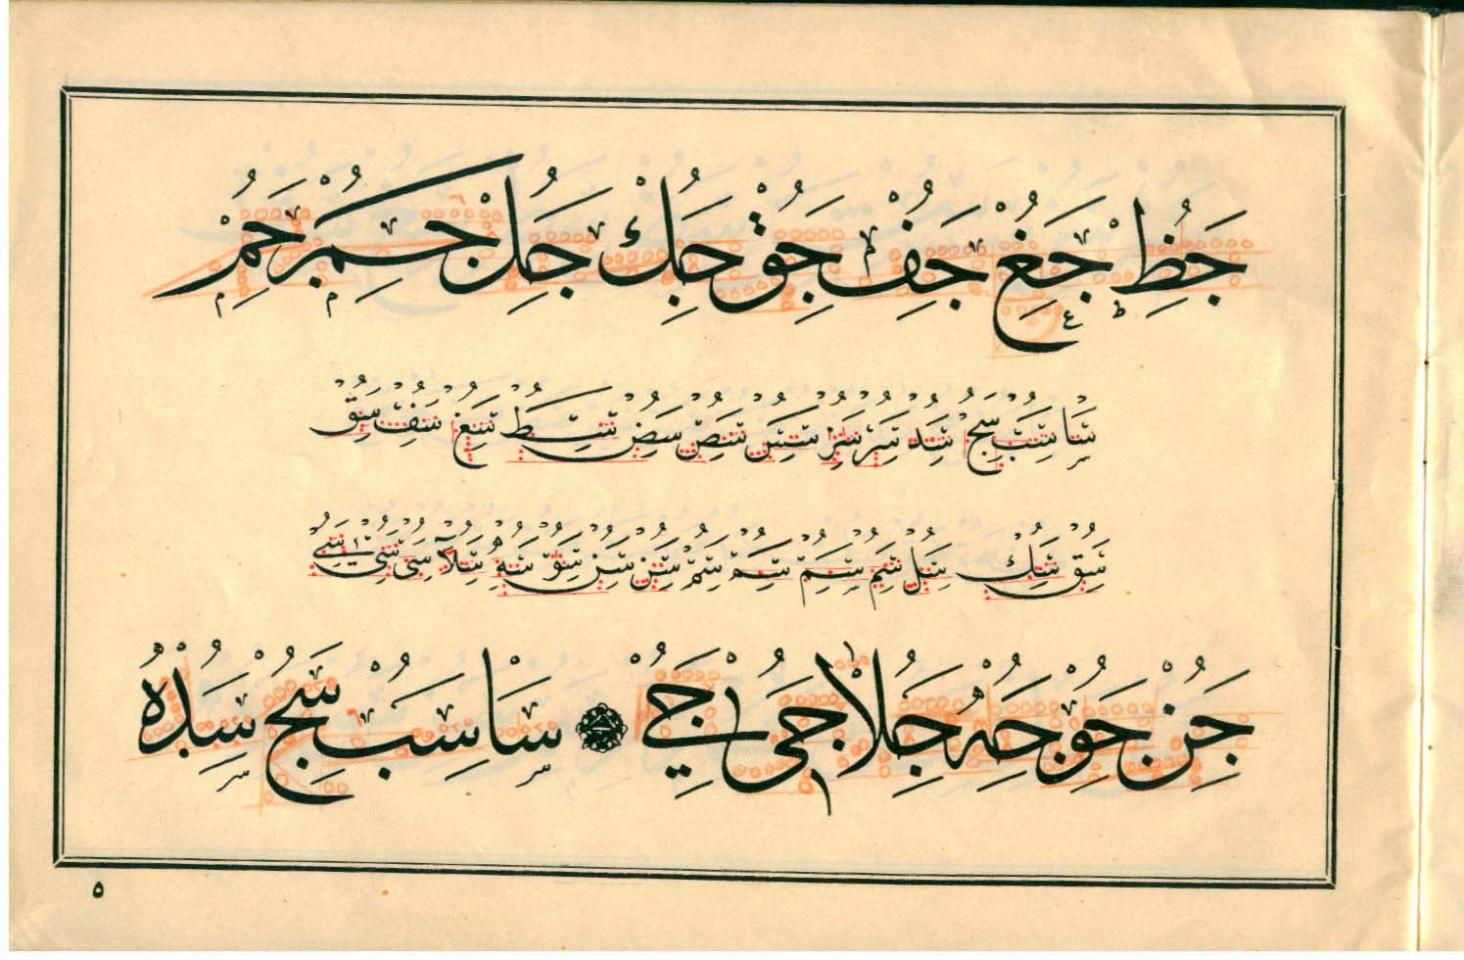 جظ جغ جف جق جك جل جم جم
سا سب سج سد سر سز سس سص سض سط سغ سف سق
سق سك سل سم سم سم سم سن سن سو سه سلا سى سى سى
جن جو جه جلا جى جي سا سب سج سد ه
٥